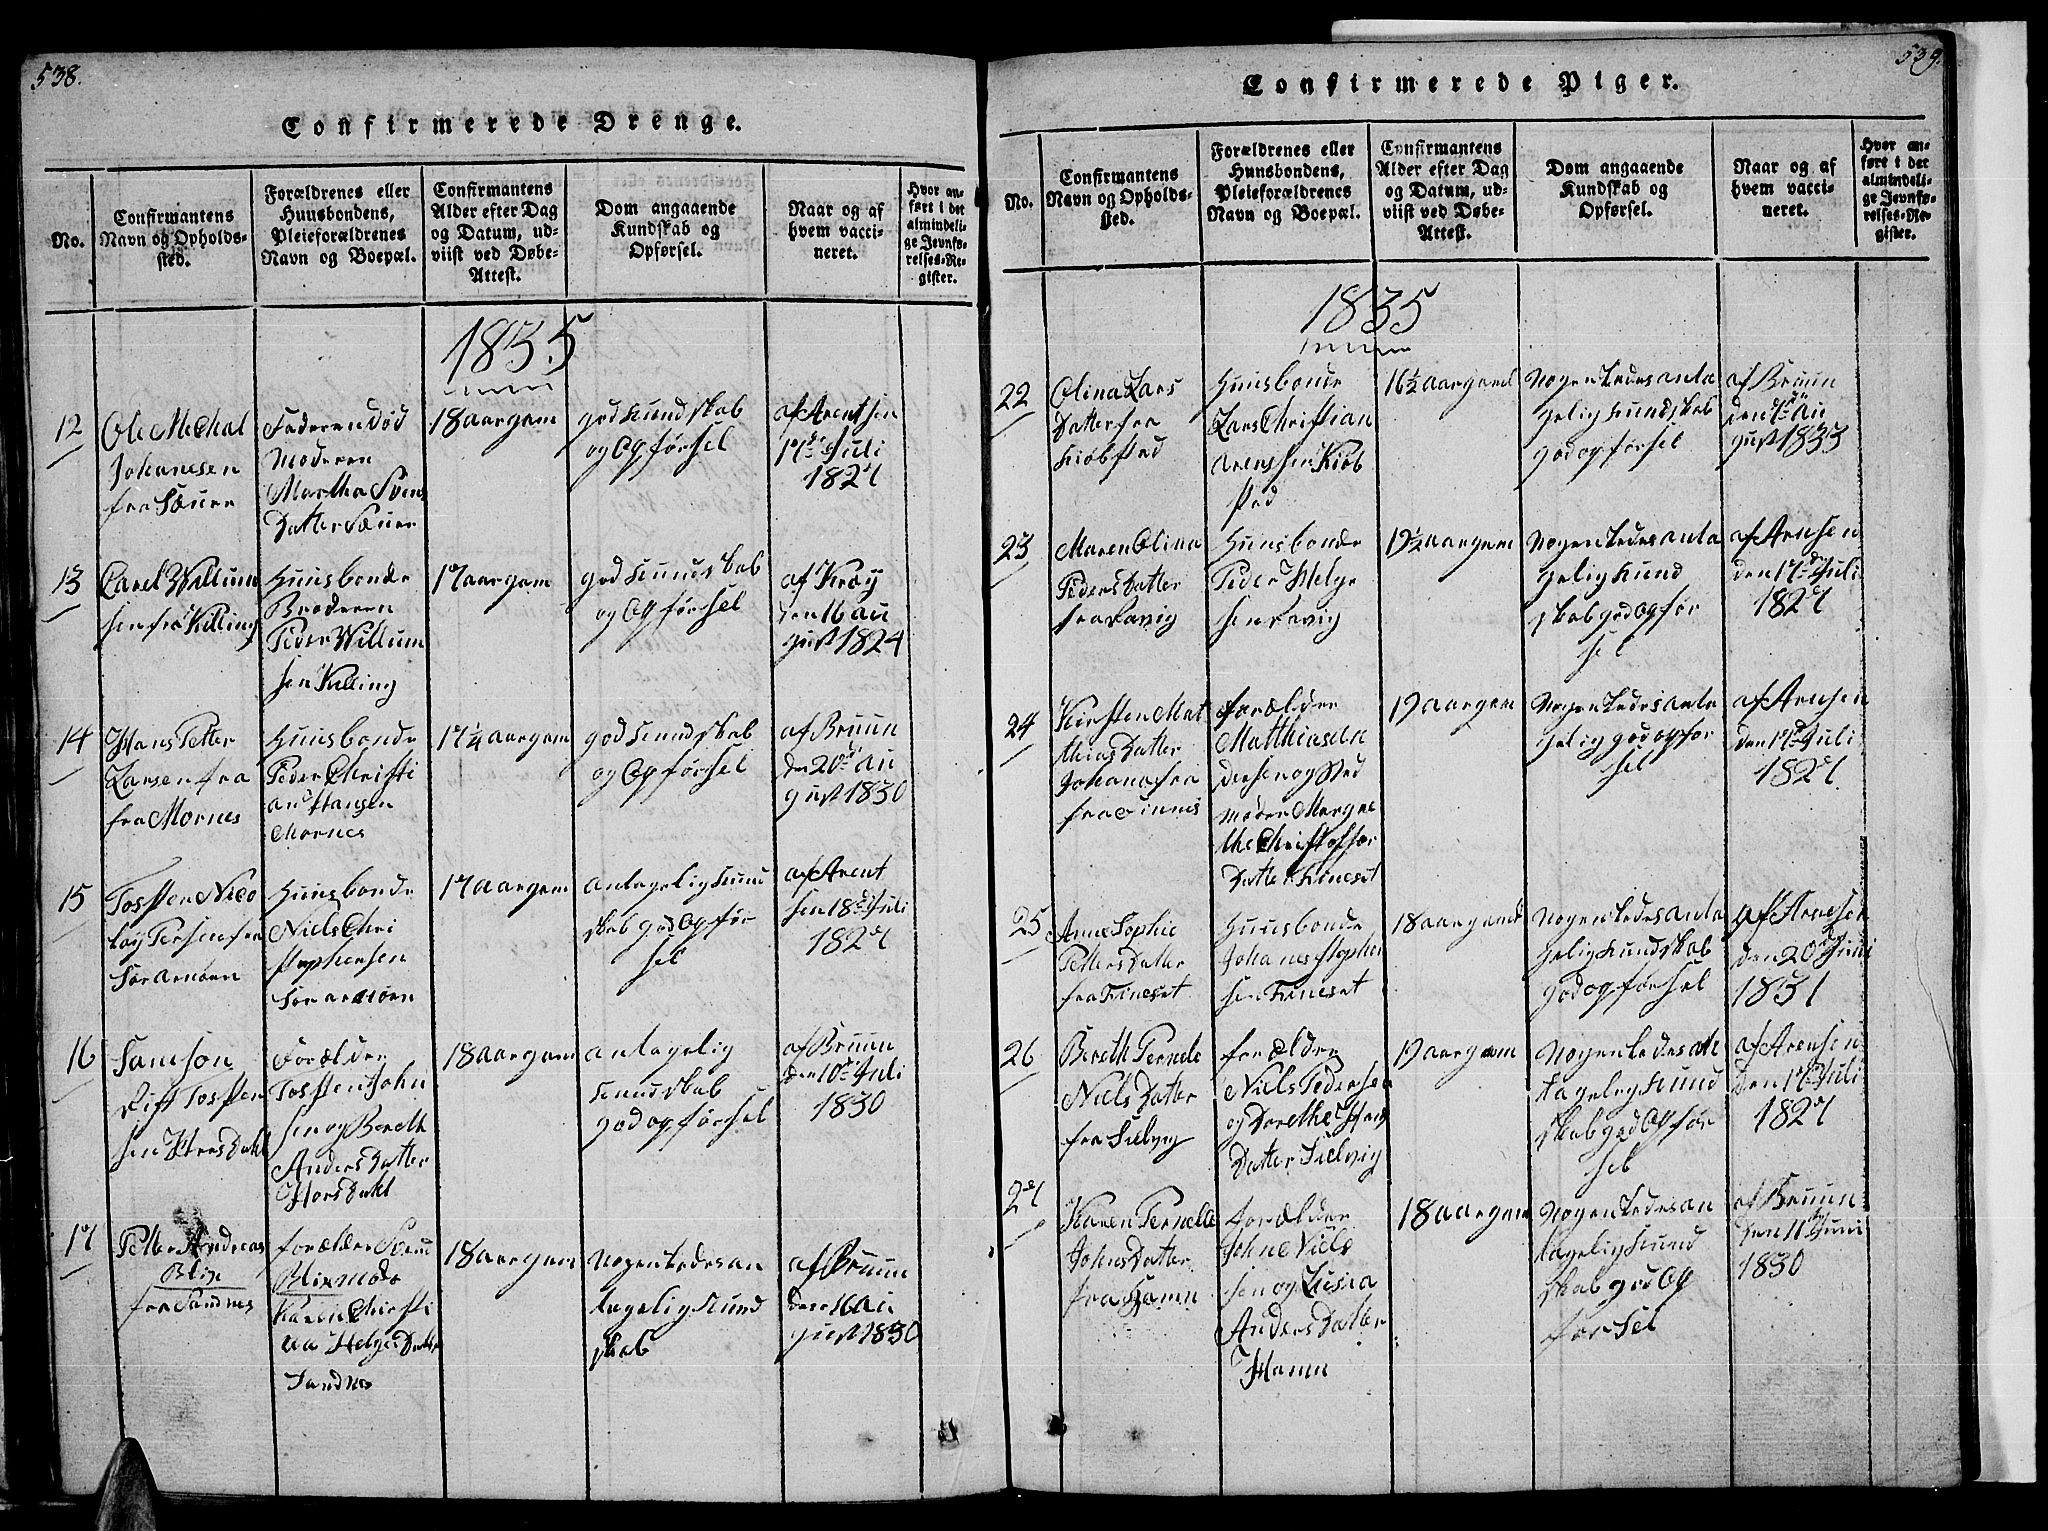 538.
Confirmerede Drenge.
No.
Confirmantens
Navn og Opholds-
sted.
Forældrenes eller
Huusbondens,
Pleieforældrenes
Navn og Boepæl.
Confirmantens
Alder efter Dag
og Datum, ud-
viist ved Døbe-
Attest.
Dom angaaende
Kundskab og
Opførsel.
Naar og af
hvem vacci-
neret.
Hvor an-
ført i det
almindeli-
ge Jevnfø-
relses-Re-
gister.
1835
12
Ole Michal
Johanesen
fra Sæuer
Faderen død
Moderen
Martha Svens
Datter Sæuer
18 aargam
god Kundskab
og Opførsel
af Arentsen
17de Juli
1827
13
Carel Willum
sen fra Killing
Huusbonde
Broderen
Peder Willum
sen Killing
17 aargam
god Kundskab
og Opførsel
af Krøy
den 16 au
gust 1824
14
Hans Petter
Larsen fra
fra Mornes
Huusbonde
Peder Christi
an Hansen
Mornes
17¼ aargam
god Kundskab
og Opførsel
af Bruun
den 20de Au
gust 1830
15
Tosten Nico
lay Persen fra
Sørarnøen
Huusbonde
Niels Chri
stophersen
Sørarnøen
17 aargam
antagelig Kund
skab god Opfør
sel
af Arent
sen 18de Juli
1827
16
Samson
Rist Tosten
sen Horsdahl
Forælder
Tosten John
sen og Bereth
Anders Datter
Horsdahl
18 aargam
antagelig
Kundskab
god opførsel
af Bruun
den 10de Juli
1830
17
Petter Andreas
Blix
fra Sandnes
forælder
Blix
Karen Christi
na Helge Datter
Sandnes
18 aargam
Nogenledes an
tagelig Kund
skab
af Bruun
den 16 au
gust 1830
539.
Confirmerede Piger.
No.
Confirmantens
Navn og Opholds-
sted.
Forældrenes eller
Huusbondens,
Pleieforældrenes
Navn og Boepæl.
Confirmantens
Alder efter Dag
og Datum, ud-
viist ved Døbe-
Attest.
Dom angaaende
Kundskab og
Opførsel.
Naar og af
hvem vacci-
neret.
Hvor an-
ført i det
almindeli-
ge Jevnfø-
relses-Re-
gister.
1835
22
Olina Lars
Datter fra
Kiøbsted
Huusbonde
Lars Christian
Arenssen Kiøb
sted
16½ aargaml
Nogenledes anta
gelig Kundskab
god opførsel
af Bruun
den 1ste Au
gust 1833
23
Maren Olina
Peders Datter
fra
Huusbonde
Peder Helge
sen
19½ aargam
Nogenledes anta
gelig Kund
skab god Opfør
sel
af Arnsen
den 17de Juli
1827
24
Kirsten Mat
thias Datter
Johana fra
fra Finnes
forælder
Matthias
og Sted
moder Margre
the Christoffer
Datter Fineset
19 aargam
Nogenledes anta
gelig god opfør
sel
af Arnsen
den 17de Juli
1827
25
Anne Sophie
Petters Datter
fra Fineset
Huusbonde
Johanes Stophen
sen Fineset
18 aargaml
Nogenledes anta
gelig Kundskab
god opførsel
af Arnesen
den 20de Juni
1831
26
Bereth Pernele
Niels Datter
fra Sielvig
forælder
Niels Pedersen
og Dorethe Hans
Datter Sielvig
19 aargam
Nogenledes an
tagelig Kund
skab god Opfør
sel
af Arensen
den 17de Juli
1827
27
Karen Pernelle
Johns Datter
fra Hamn
forælder
John Niels
sen og
Anders Datter
Hamn
18 aargam
Nogenledes an
tagelig Kund
skab god Op
førsel
af Bruun
den 11te Juni
1830